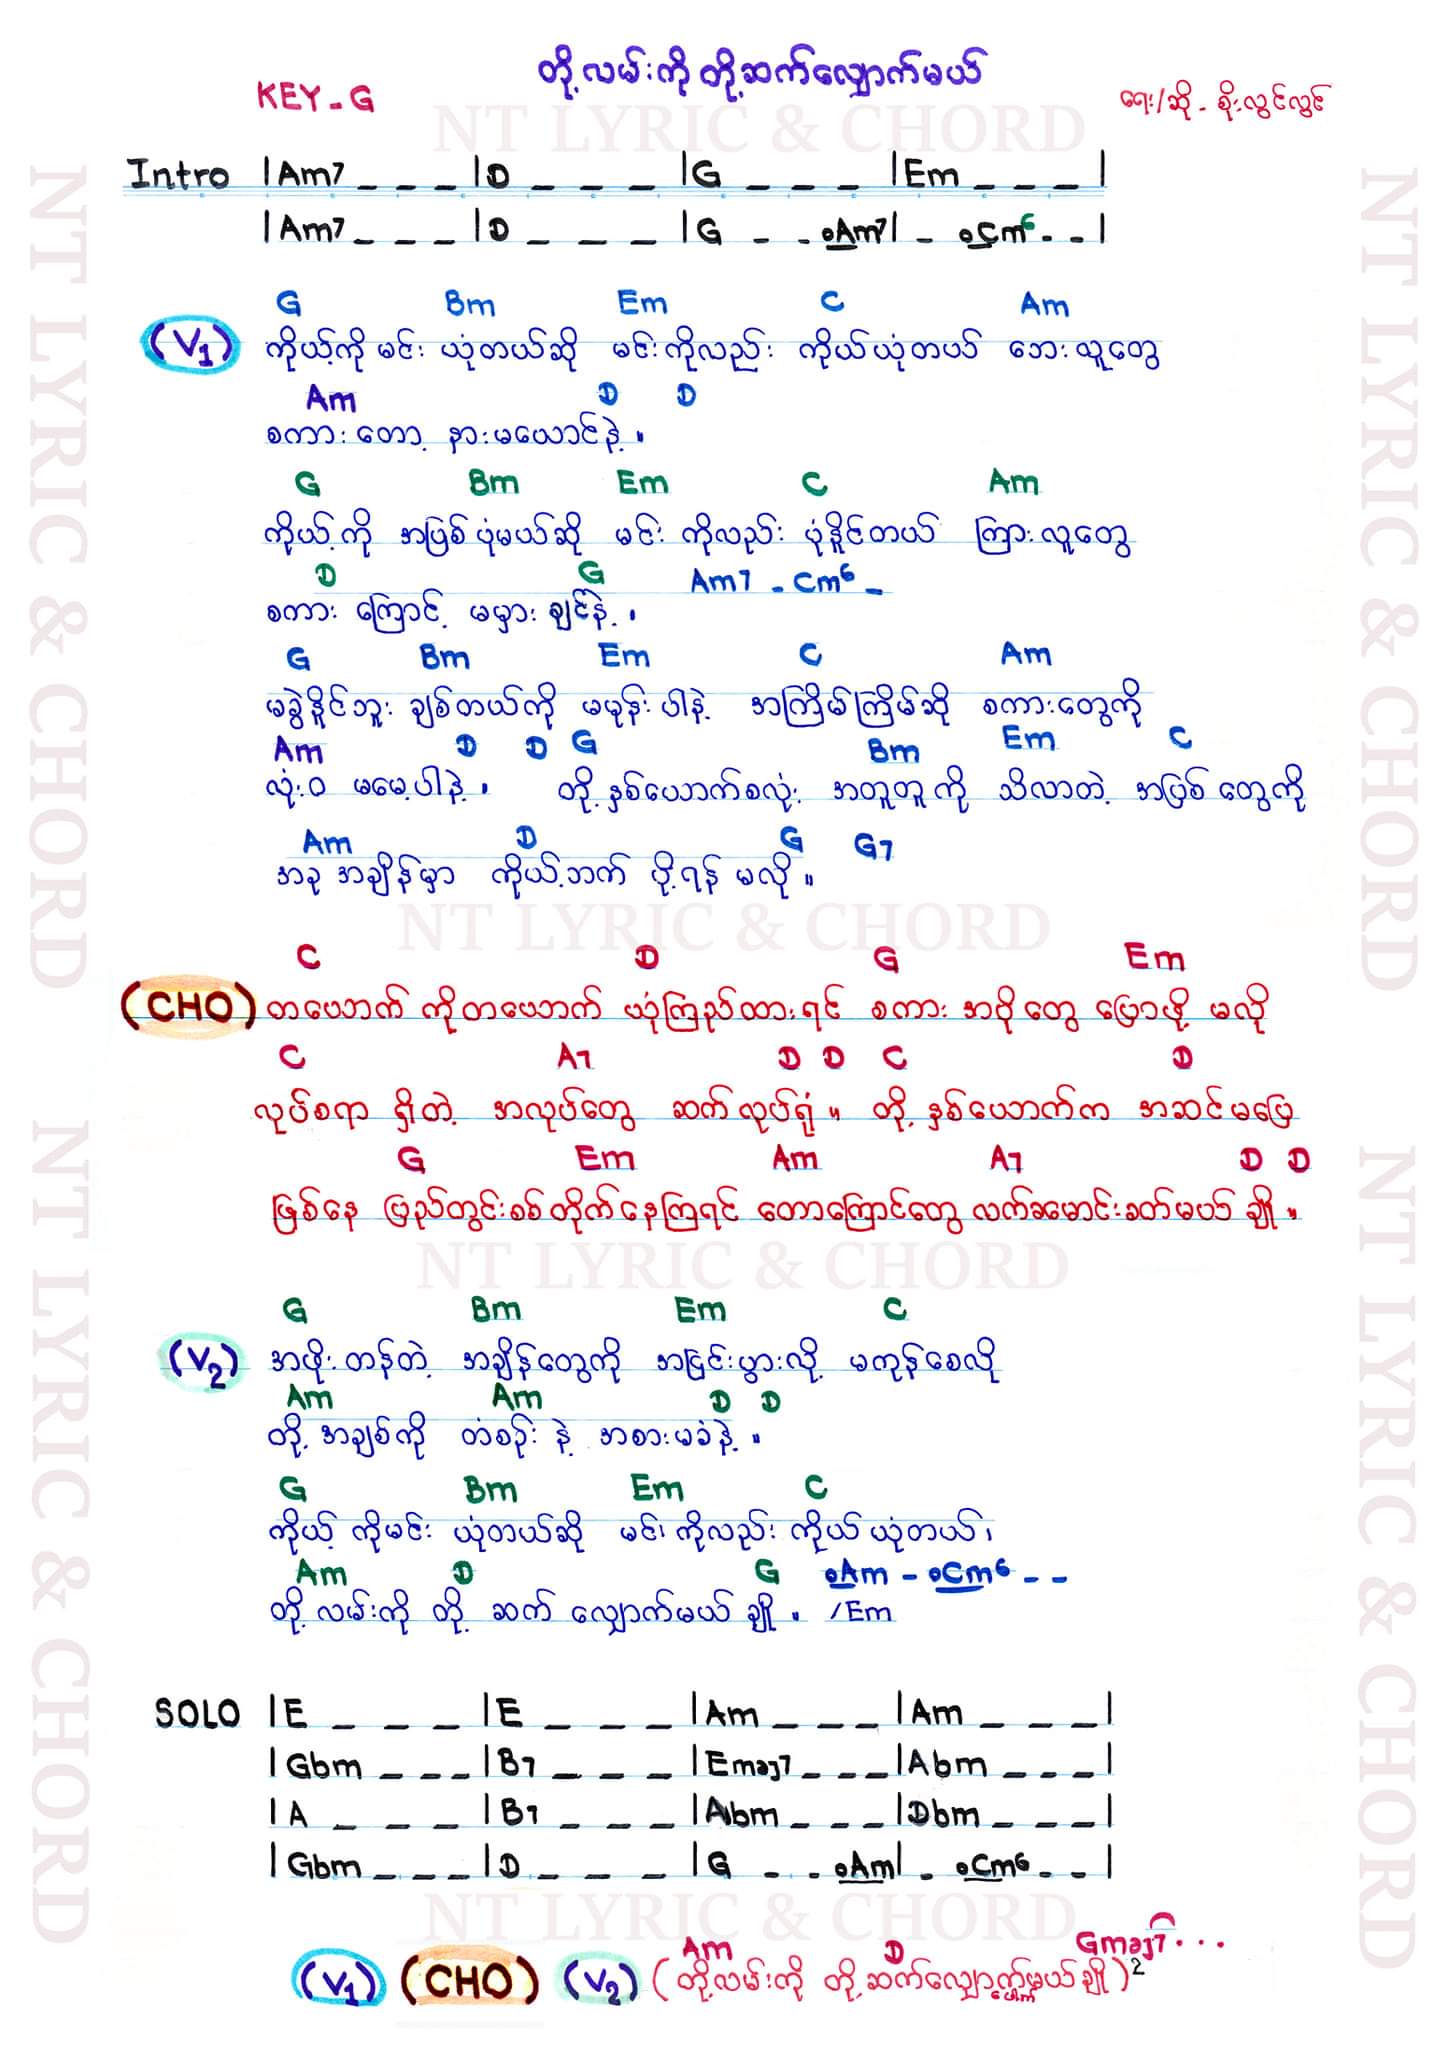 တို့လမ်းကို တို့ဆက်လျှောက်မယ်
KEY - G
ရေး/ဆို - စိုးလွင်လွင်
NT LYRIC & CHORD
Intro |Am7 _ _ _ |D _ _ _ |G _ _ _ |Em _ _ _ |
|Am7 _ _ _ |D _ _ _ |G - - oAm7| - oCm6 - - |
G Bm Em C Am
(V1) ကိုယ့်ကို မင်း ယုံတယ်ဆို မင်းကိုလည်း ကိုယ်ယုံတယ် ဘေးလူတွေ
Am D D
စကားတော့ နားမယောင်နဲ့။
G Bm Em C Am
ကိုယ့်ကို အပြစ်ပုံမယ်ဆို မင်းကိုလည်း ပုံနိုင်တယ် ကြားလူတွေ
D G Am7 - Cm6 -
စကား ကြောင့် မမှားချင်နဲ့။
G Bm Em C Am
မခွဲနိုင်ဘူး ချစ်တယ်ကို မမုန်းပါနဲ့ အကြိမ်ကြိမ်ဆို စကားတွေကို
Am D D G Bm Em C
လုံးဝ မမေ့ပါနဲ့။ တို့နှစ်ယောက်စလုံး အတူတူကို သိလာတဲ့ အပြစ်တွေကို
Am D G G7
အခု အချိန်မှာ ကိုယ့်ဘက် ပို့ရန် မလို။
NT LYRIC & CHORD
C D G Em
(CHO) တယောက် ကိုတယောက် ယုံကြည်ထားရင် စကား အပိုတွေ ပြောဖို့ မလို
C A7 D D C D
လုပ်စရာ ရှိတဲ့ အလုပ်တွေ ဆက်လုပ်ရုံ။ တို့နှစ်ယောက်က အဆင်မပြေ
G Em Am A7 D D
ဖြစ်နေ ပြည်တွင်းစစ်တိုက်နေကြရင် တောကြောင်တွေ လက်ခမောင်းခတ်မယ် ချို။
NT LYRIC & CHORD
G Bm Em C
(V2) အဖိုးတန်တဲ့ အချိန်တွေကို အငြင်းပွားလို့ မကုန်စေလို
Am Am D D
တို့အချစ်ကို တံစဉ်းနဲ့ အစားမခံနဲ့။
G Bm Em C
ကိုယ့်ကိုမင်း ယုံတယ်ဆို မင်းကိုလည်း ကိုယ်ယုံတယ်၊
Am D G oAm - oCm6 - -
တို့လမ်းကို တို့ ဆက် လျှောက်မယ် ချို။ /Em
SOLO |E _ _ _ |E _ _ _ |Am _ _ _ |Am _ _ _ |
|Gbm _ _ _ |B7 _ _ _ |Emaj7 _ _ _ |Abm _ _ _ |
|A _ _ _ |B7 _ _ _ |Abm _ _ _ |Dbm _ _ _ |
|Gbm _ _ _ |D _ _ _ |G - - oAm| - oCm6 - - |
NT LYRIC & CHORD
Am D Gmaj7...
(V1) (CHO) (V2) (တို့လမ်းကို တို့ဆက်လျှောက်မယ်ချို)2
NT LYRIC & CHORD
NT LYRIC & CHORD
NT LYRIC & CHORD
NT LYRIC & CHORD